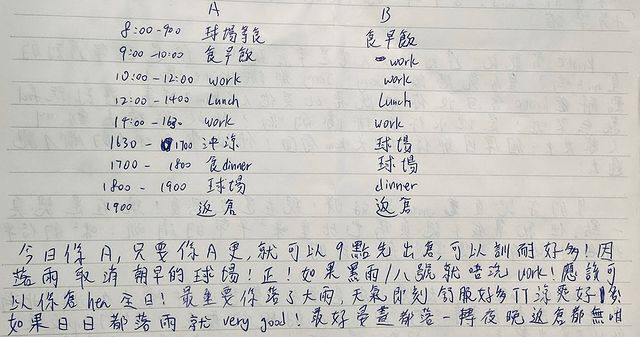 A B
8:00-900 球場等食 食早飯
9:00-10:00 食早飯 work
10:00-12:00 work work
12:00-1400 Lunch Lunch
14:00-1630 work work
1630-1700 沖涼 球場
1700-1800 食dinner 球場
1800-1900 球場 dinner
1900 返倉 返倉
今日係A,只要係A更,就可以9點先出倉,可以訓耐好多!因
落雨取消朝早的球場!正!如果黑雨/八號就唔洗work!應該可
以係倉hea全日!最重要係落了大雨,天氣即刻舒服好多!涼爽好多
如果日日都落雨就very good!最好晏晝都落一轉夜晚返倉都無咁